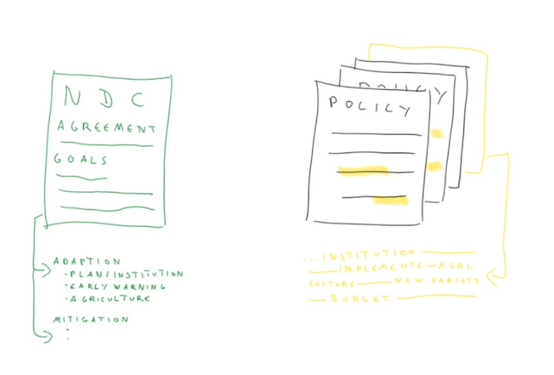 NDC
AGREEMENT
GOALS
ADAPTION
· PLAN/INSTITUTION
· EARLY WARNING
· AGRICULTURE
MITIGATION
:
POLICY
POLICY
...INSTITUTION
IMPLEMENTS AGRI-
CULTURE NEW VARIETY
BUDGET